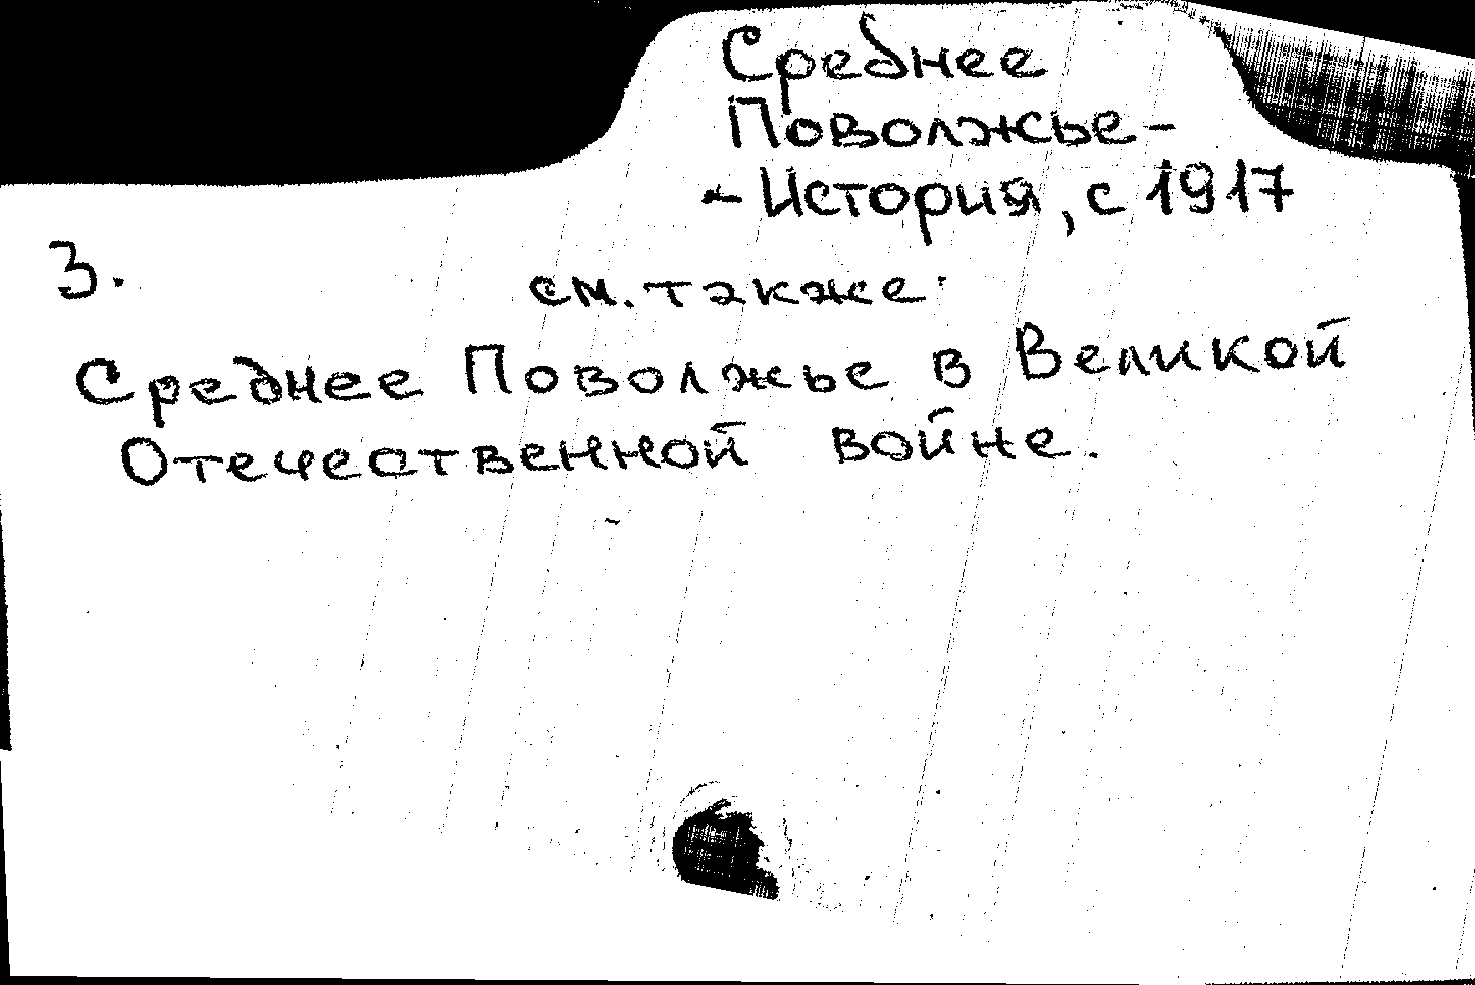 Среднее
Поволжье -
- История, с 1917
3.
см. также:
Среднее Поволжье в Великой
Отечественной войне.